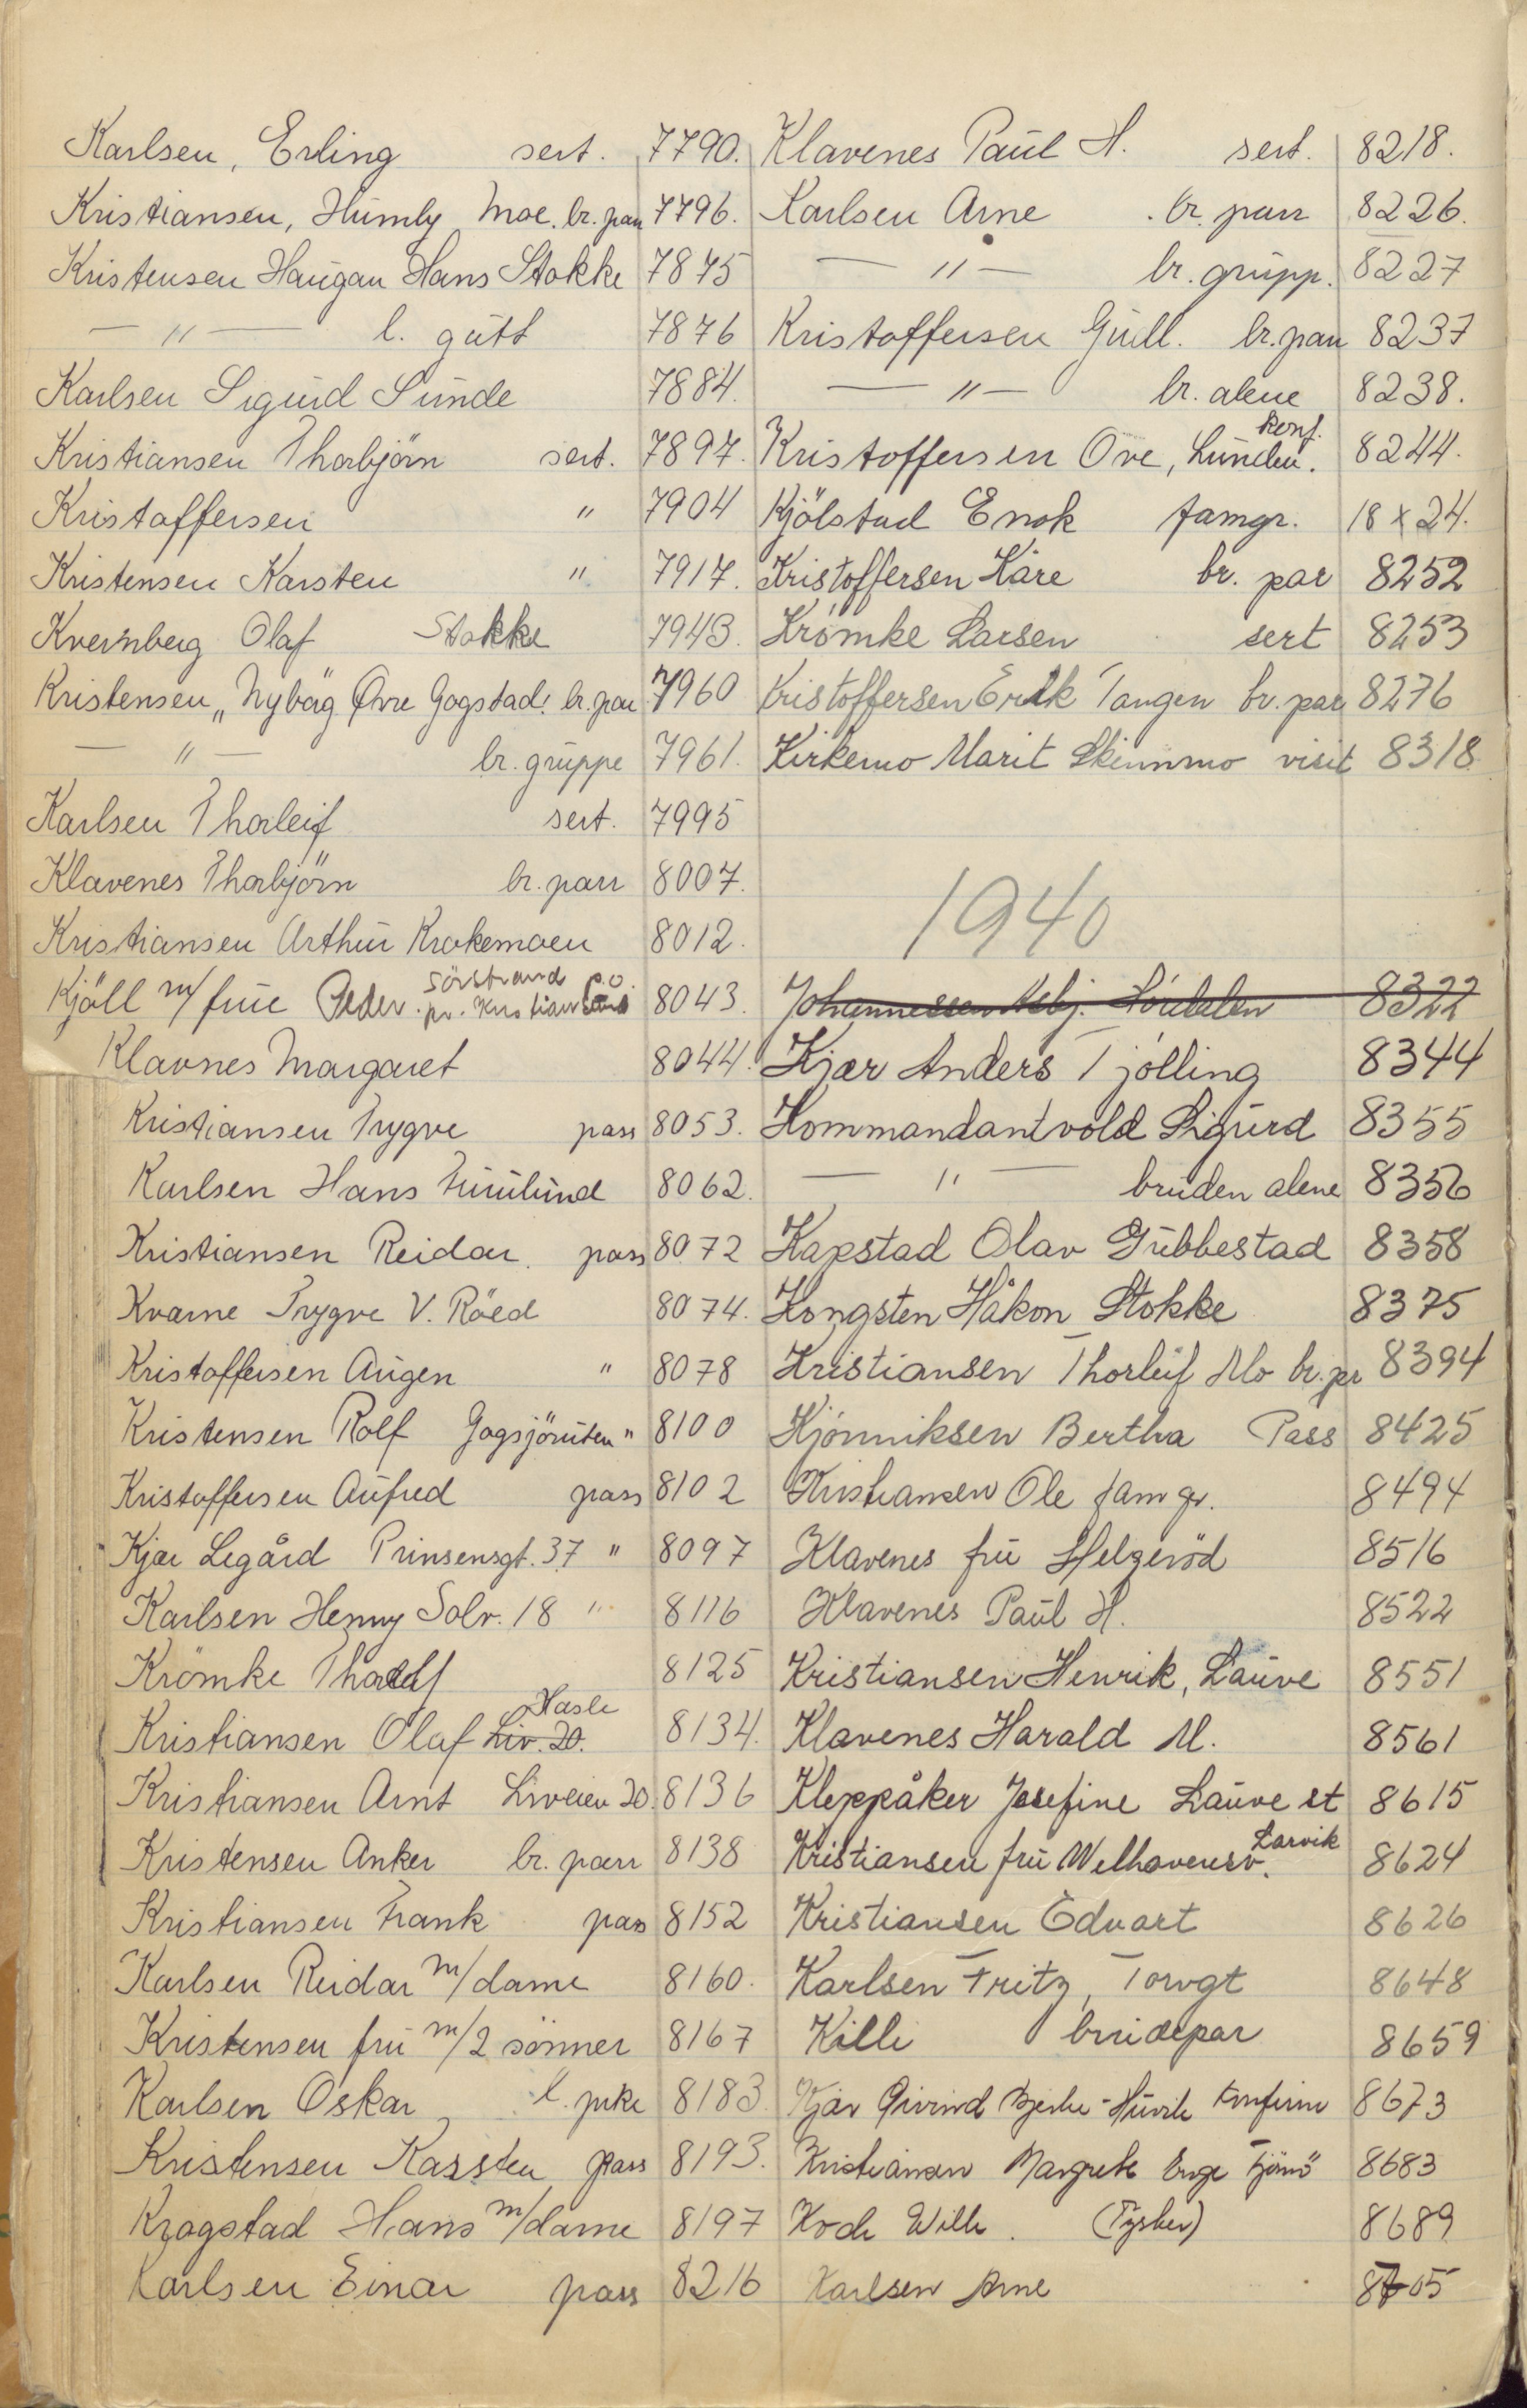 Karlsen, Erling sert. 7790.
Kristiansen, Humly Moe. br. par 7796.
Kristensen Haugan Hans Stokke 7875
— " — l. gutt 7876
Karlsen Sigurd Sunde 7884.
Kristiansen Thorbjörn sert. 7897.
Kristoffersen " 7904
Kristensen Karsten " 7917.
Kvernberg Olaf Stokke 7943.
Kristensen „Nybög" Øvre Gogstad. br. par 7960
— " — br. gruppe 7961.
Karlsen Thorleif sert. 7995
Klavenes Thorbjörn br. parr 8007.
Kristiansen Arthur Krokemoen 8012.
Sörstrand p.o.
Kjöll m/ frue Peder. pr. Kristiansund 8043.
Klavnes Margaret 8044.
Kristiansen Trygve pass 8053.
Karlsen Hans Furulund 8062.
Kristiansen Reidar. pass 8072
Kvarne Trygve V. Röed 8074.
Kristoffersen Augen " 8078
Kristensen Rolf Gogsjöruten " 8100
Kristoffersen Aufred pass 8102
Kjær Legård Prinsensgt. 37 " 8097
Karlsen Henny Solv. 18 " 8116
Krömke Thoralf 8125
Hasle
Kristiansen Olaf Liv. 20. 8134.
Kristiansen Arnt Liveien 20. 8136
Kristensen Anker br. parr 8138
Kristiansen Frank pass 8152
Karlsen Reidar m/dame 8160.
Kristensen fru m/2 sönner 8167
Karlsen Oskar l. pike 8183.
Kristensen Karsten pass 8193.
Krogstad Hans m/dame 8197
Karlsen Einar pass 8216
Klavenes Paul H. sert. 8218.
Karlsen Arne br. parr 8226.
— " — br. grupp. 8227
Kristoffersen Gudl. br. par 8237
— " — br. alene 8238.
konf.
Kristoffersen Ove, Lunden. 8244.
Kjölstad Enok famgr. 18 x 24.
Kristoffersen Kåre br. par 8252
Krömke Larsen sert 8253
Kristoffersen Erik Tangen br. par 8276
Kirkemo Marit Skinnmo visit 8318
1940
Johannessen Asbj. Lördalen 8322
Kjær Anders Tjölling 8344
Kommandantvold Sigurd 8355
— " — bruden alene 8356
Kapstad Olav Gubbestad 8358
Kongsten Håkon Stokke 8375
Kristiansen Thorleif Mo br. pr 8394
Kjönniksen Bertha Pass 8425
Kristiansen Ole fam gr. 8494
Klavenes fru Helgeröd 8516
Klavenes Paul H. 8522
Kristiansen Henrik, Lauve 8551
Klavenes Harald M. 8561
Kleppåker Josefine Lauve st 8615
Larvik
Kristiansen fru Welhavensv. 8624
Kristiansen Edvart 8626
Karlsen Fritz, Torvgt 8648
Killi brudepar 8659
Kjær Öivind 8673
Kristiansen Margrete Enge Tjömö 8683
Koch Willi. (Tysker) 8689
Karlsen Arne 8705